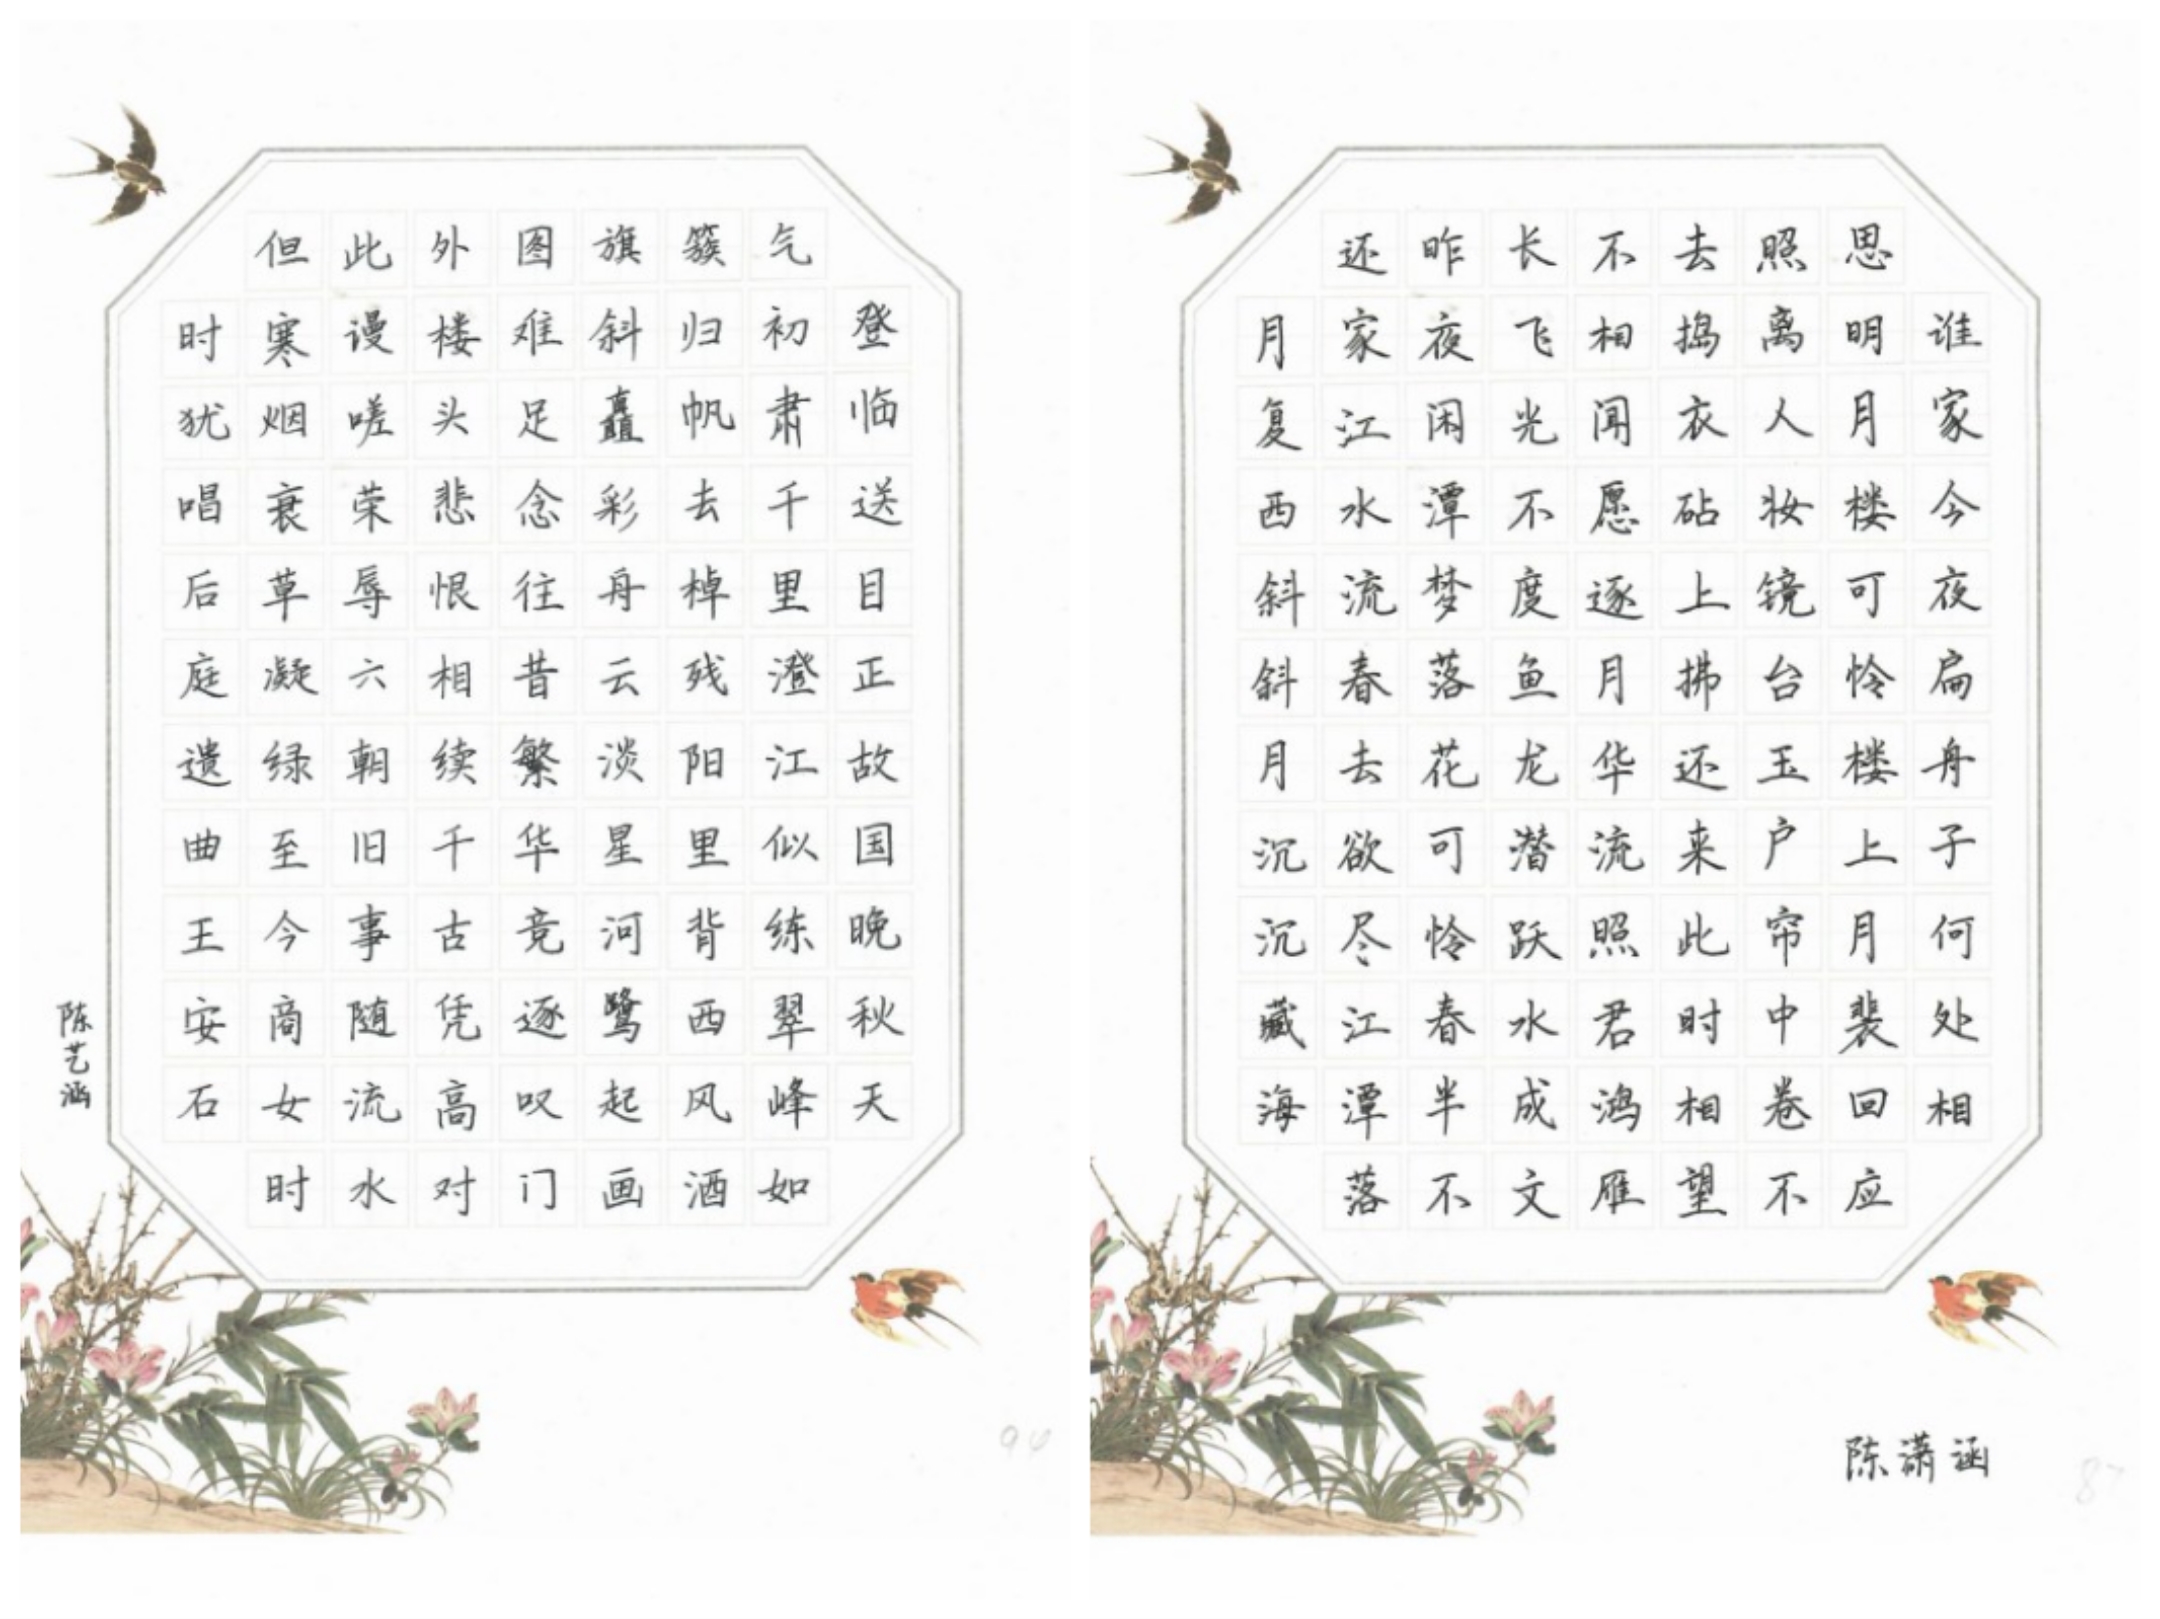 登临送目正故国晚秋天
气初肃千里澄江似练翠峰如
簇归帆去棹残阳里背西风酒
旗斜矗彩舟云淡星河鹭起画
图难足念往昔繁华竞逐叹门
外楼头悲恨相续千古凭高对
此谩嗟荣辱六朝旧事随流水
但寒烟衰草凝绿至今商女时
时犹唱后庭遗曲王安石
陈艺涵
谁家今夜扁舟子何处相
思明月楼可怜楼上月裴回应
照离人妆镜台玉户帘中卷不
去捣衣砧上拂还来此时相望
不相闻愿逐月华流照君鸿雁
长飞光不度鱼龙潜跃水成文
昨夜闲潭梦落花可怜春半不
还家江水流春去欲尽江潭落
月复西斜斜月沉沉藏海
陈潇涵
87